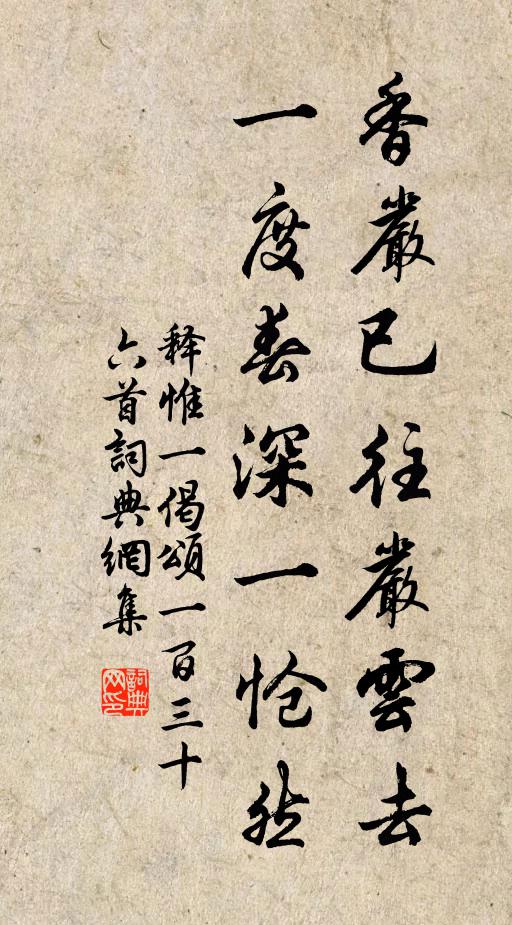 香嚴已往嚴雲去
一度春深一愴然
释惟一偈頌一百三十
六首詞典網集
詞典网印